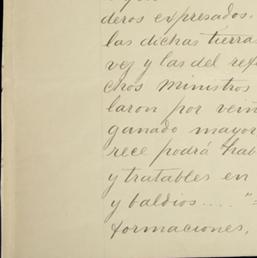 deros expresados.
las dichas tierra
vez y las del ref
chos ministros
laron por vein
ganado mayor
rece podrá hab
y tratables en
y baldios...."=
formaciones,